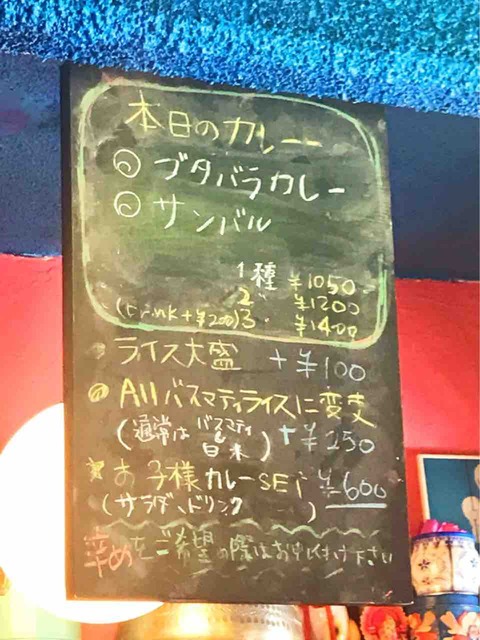 本日のカレー
◎ ブタバラカレー
◎ サンバル
1種 ¥1050
2〃 ¥1200
(Drink+¥200) 3〃 ¥1400
ライス大盛 +¥100
Allバスマティライスに変更
(通常はバスマティ&白米) +¥250
お子様カレーSET ¥600
(サラダ、ドリンク )
辛めをご希望の際はお申し付け下さい